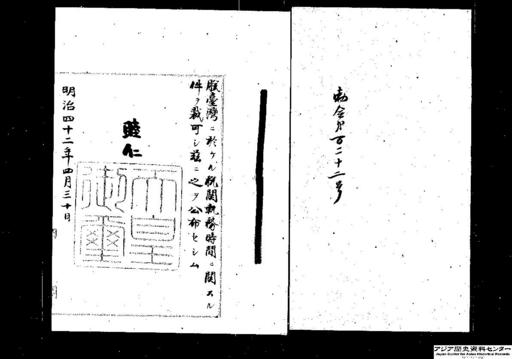 勅令第百二十二号
朕臺灣ニ於ケル稅關執務時間ニ關スル
件ヲ裁可シ茲ニ之ヲ公布セシム
睦仁
天皇御璽
明治四十二年四月三十日
アジア歴史資料センター
Japan Center for Asian Historical Records